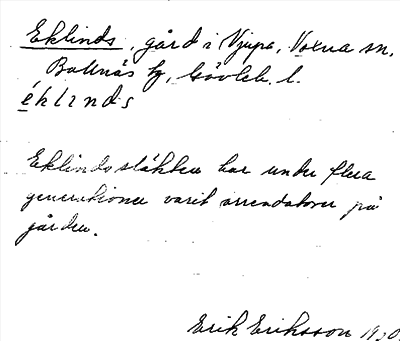 Eklinds, gård i Vjupa, Voxna sn,
Bollnäs fg, Gävleb. l.
éklinds
Eklindssläkten har under flera
generationer varit arrendatorer på
gården.
Erik Eriksson 1930